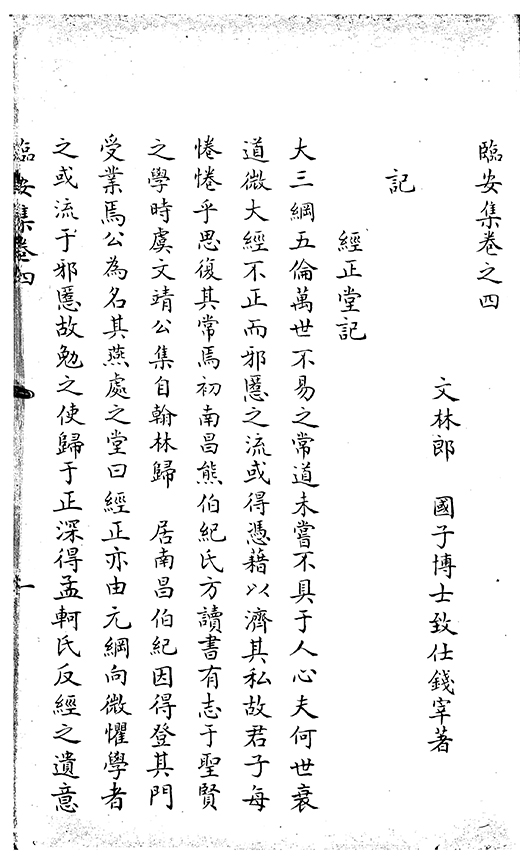 臨安集卷之四
文林郎　國子博士致仕錢宰著
記
經正堂記
大三綱五倫萬世不易之常道未嘗不具于人心夫何世衰
道微大經不正而邪慝之流或得憑藉以濟其私故君子每
惓惓乎思復其常焉初南昌熊伯紀氏方讀書有志于聖賢
之學時虞文靖公集自翰林歸　居南昌伯紀因得登其門
受業焉公為名其燕處之堂曰經正亦由元綱向微懼學者
之或流于邪慝故勉之使歸于正深得孟軻氏反經之遺意
臨安集卷四
一